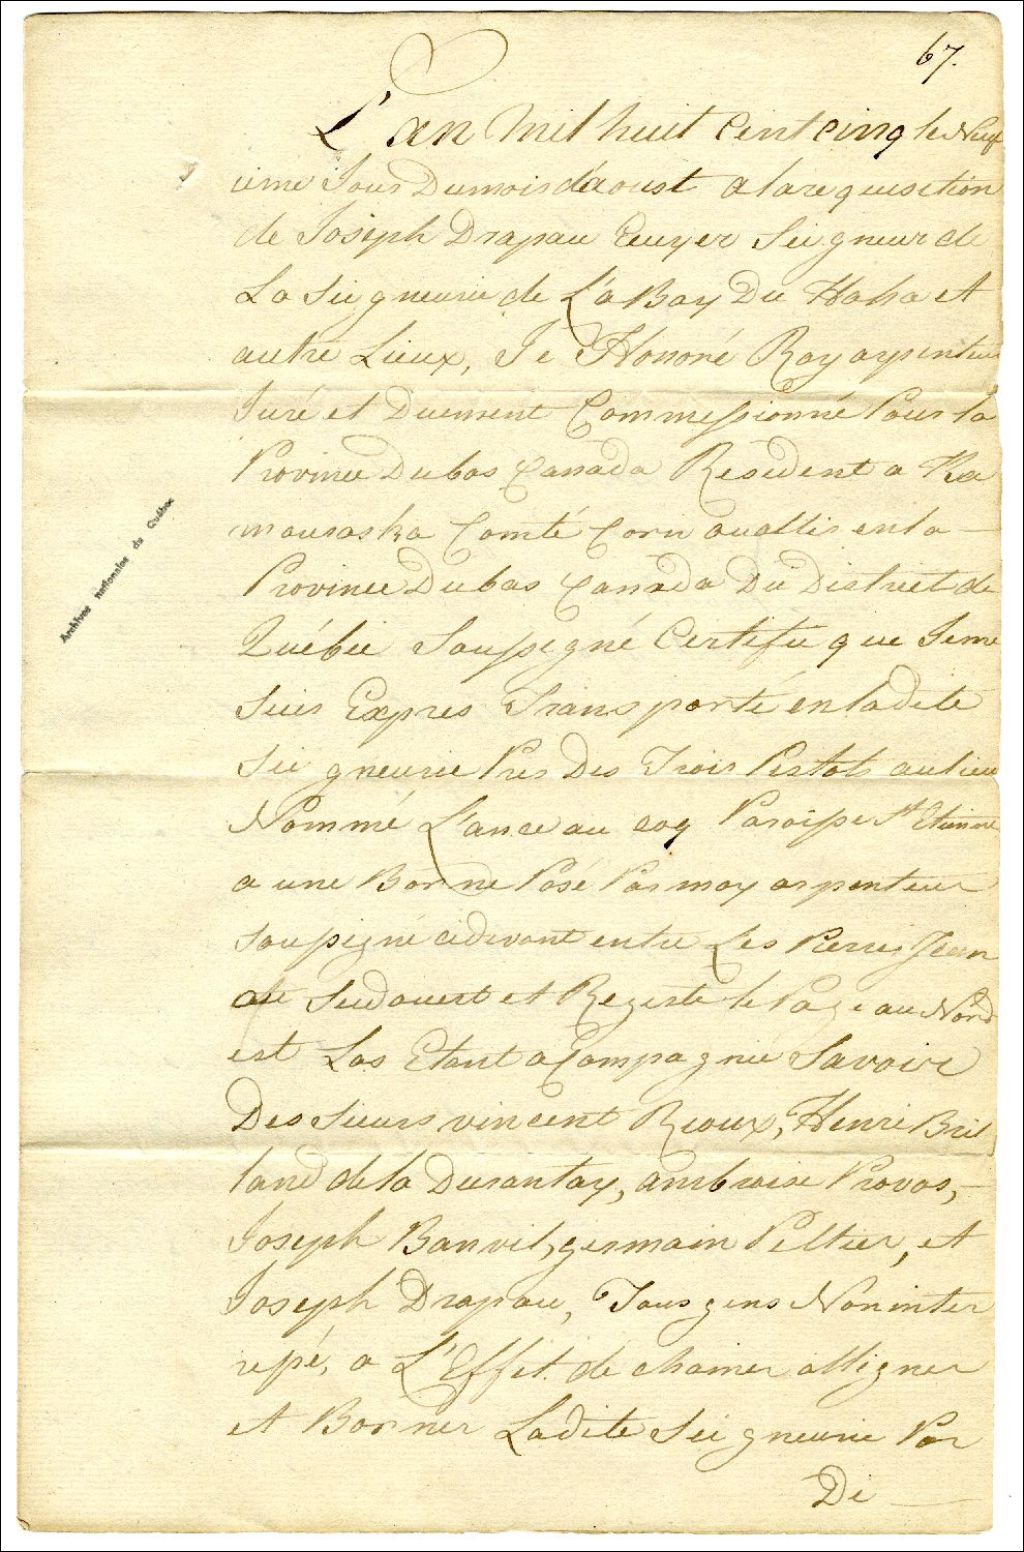 67.
L'an Mil huit Cent cinq le Neuf
ieme Jour Dumois d'aoust a la requisition
de Joseph Drapau Ecuyer Seigneur de
La Seigneurie de L'a Bay Du Haha et
autre Lieux, Je Honoré Roy arpenteur
Juré et Duement Commessionné Pour la
Province Dubas Canada Resident a Ka
mouraska Comté Cornouallis en la
Province Dubas Canada Du District de
Québec Soussigné Certifie que Jeme
Suis Expres Transporté en ladite
Seigneurie Pres Des Trois Pistols au lieu
Nommé L'ance au coq Paroisse St Etienne
a une Borne Posé Par moy arpenteur
Soussigné cidevant entre Les Pierre Jean
au Sudouest et Registe le Page au Nord
est Las Etant aCompagnié Savoir
Des Sieurs vincent Rioux, Henri Bril
land de la Durantay, ambroise Provos,
Joseph Banvil, germain Peltier, et
Joseph Drapau, Tous gens Non inter
repé, a L'Effet de chainer alligner
et Borner Ladite Seigneurie Par
Di
Archives nationales du Québec